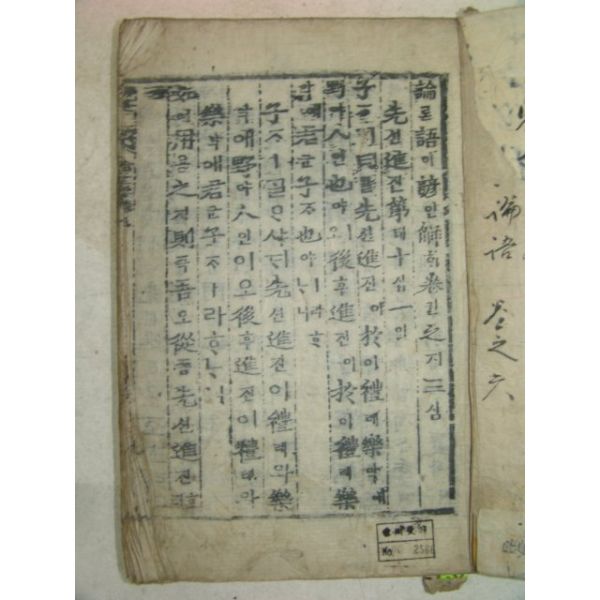 論語 卷之六
論론語어諺언解ᄒᆡ卷권之지三삼
先션進진第뎨十십一일
子ᄌᆞㅣ曰왈先션進진이於어禮례樂악애
野야人인也야ㅣ오後후進진이於어禮례樂
악애君군子ᄌᆞ也야ㅣ라ᄒᆞᄂᆞ니
子ᄌᆞㅣᄀᆞᆯᄋᆞ샤ᄃᆡ先션進진이禮례와樂
악애野야人인이오後후進진이禮례와
樂악애君군子ᄌᆞㅣ라ᄒᆞᄂᆞ니
如여用용之지則즉吾오從죵先션進진호
No.